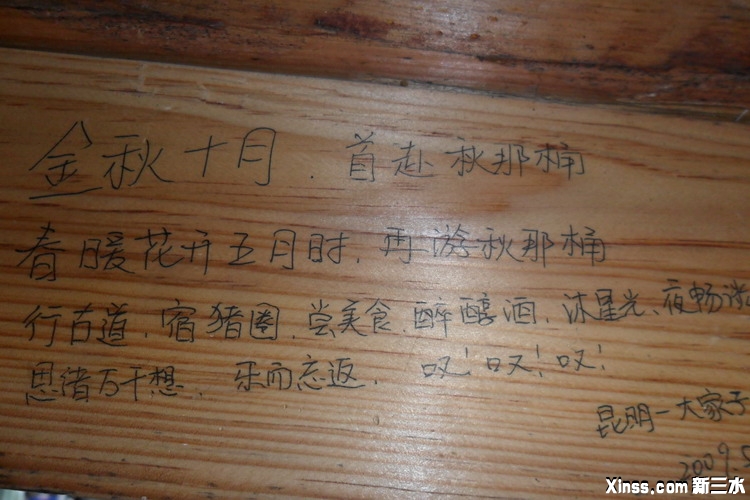 金秋十月.首赴秋那桶
春暖花开五月时,再游秋那桶
行古道、宿猪圈、尝美食、醉醇酒、沐星光、夜畅谈
思绪万千想、乐而忘返、叹!叹!叹!
昆明一大家子
2009.5
Xinss.com 新三水